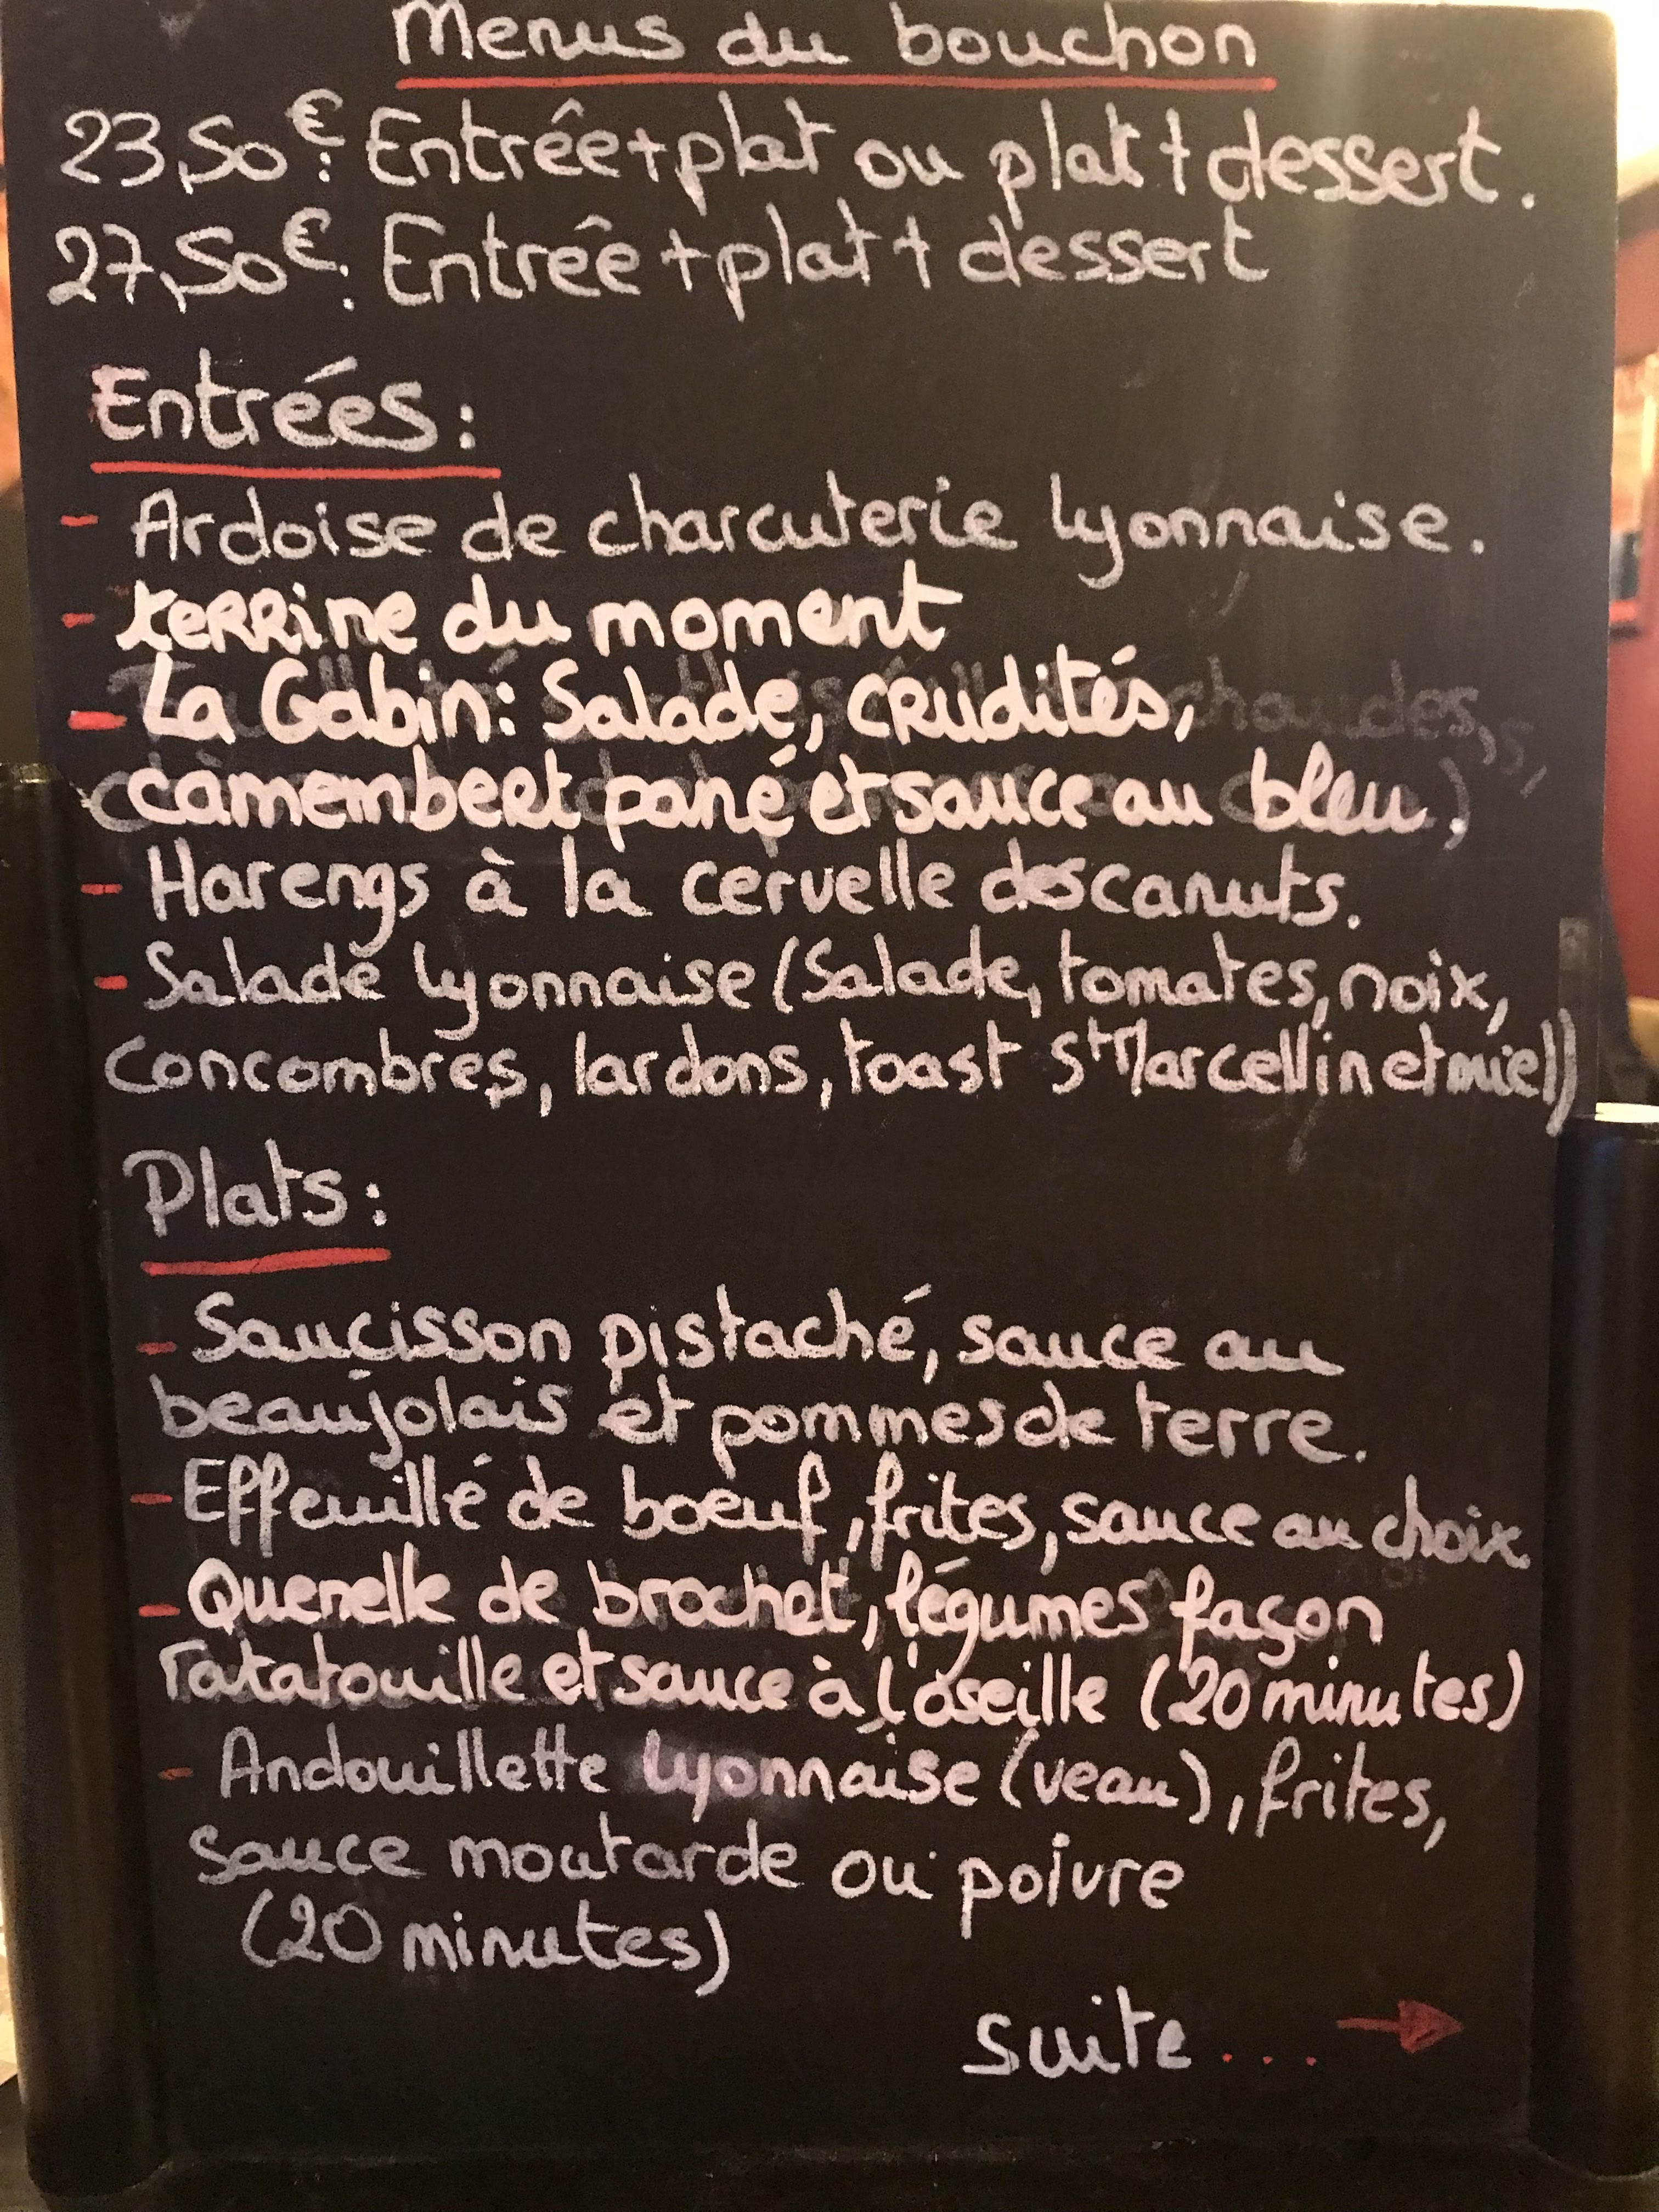 Menus du bouchon
23,50€: Entrée+plat ou plat+dessert.
27,50€: Entrée+plat+dessert
Entrées:
- Ardoise de charcuterie lyonnaise.
- terrine du moment
- La Gabin: Salade, crudités,
camembert pané et sauce au bleu.
- Harengs à la cervelle des canuts.
- Salade lyonnaise (Salade, tomates, noix,
concombres, lardons, toast St Marcellin et miel)
Plats:
- Saucisson pistaché, sauce au
beaujolais et pommes de terre.
- Effeuillé de boeuf, frites, sauce au choix
- Quenelle de brochet, légumes façon
ratatouille et sauce à l'oseille (20 minutes)
- Andouillette lyonnaise (veau), frites,
sauce moutarde ou poivre
(20 minutes)
suite... →